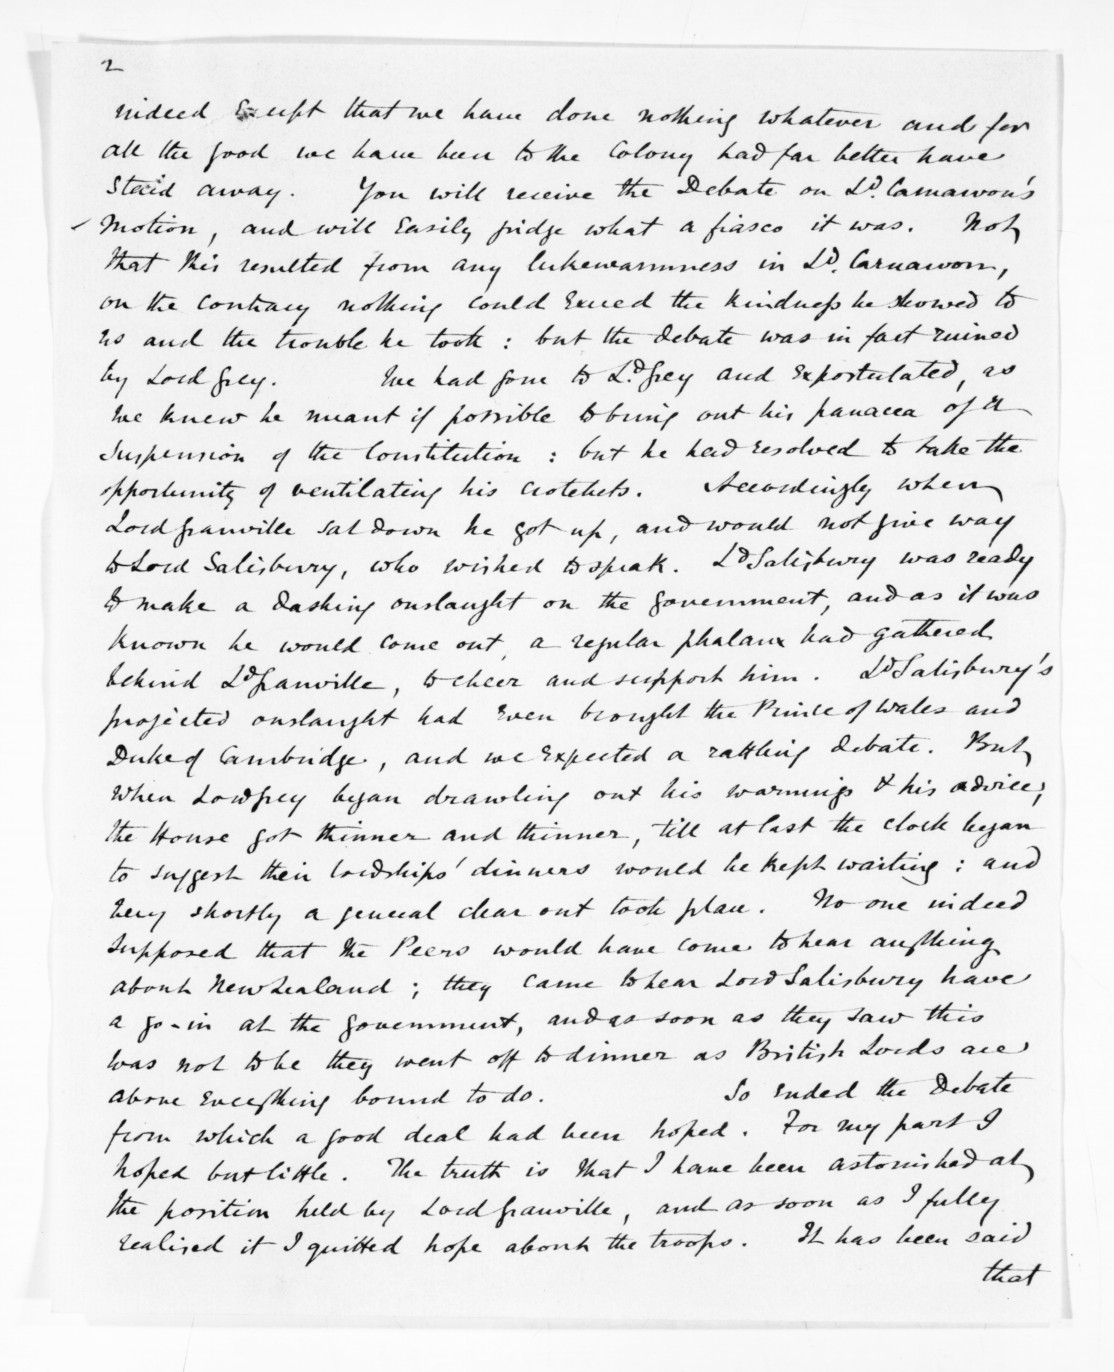 2
indeed Except that we have done nothing whatever and for
all the good we have been to the Colony had far better have
staid away. You will receive the Debate on Ld. Carnarvon's
Motion, and will Easily judge what a fiasco it was. Not
that this resulted from any lukewarmness in Ld. Carnarvon,
on the contrary nothing could Exceed the kindness he showed to
us and the trouble he took : but the debate was in fact ruined
by Lord Grey. We had gone to Ld. Grey and Expostulated, as
we knew he meant if possible to bring out his panacea of a
Suspension of the Constitution : but he had resolved to take the
opportunity of ventilating his crotchets. Accordingly when
Lord Granville sat down he got up, and would not give way
to Lord Salisbury, who wished to speak. Ld Salisbury was ready
to make a dashing onslaught on the Government, and as it was
known he would come out, a regular phalanx had gathered
behind Ld Granville, to cheer and support him. Ld Salisbury's
projected onslaught had Even brought the Prince of Wales and
Duke of Cambridge, and we Expected a rattling debate. But
when Lord Grey began drawling out his warnings & his advice,
the House got thinner and thinner, till at last the clock began
to suggest their lordships' dinners would be kept waiting : and
very shortly a general clear out took place. No one indeed
supposed that the Peers would have come to hear anything
about New Zealand ; they came to hear Lord Salisbury have
a go-in at the Government, and as soon as they saw this
was not to be they went off to dinner as British Lords are
above Everything bound to do. So Ended the Debate
from which a good deal had been hoped. For my part I
hoped but little. The truth is that I have been astonished at
the position held by Lord Granville, and as soon as I fully
realised it I quitted hope about the troops. It has been said
that